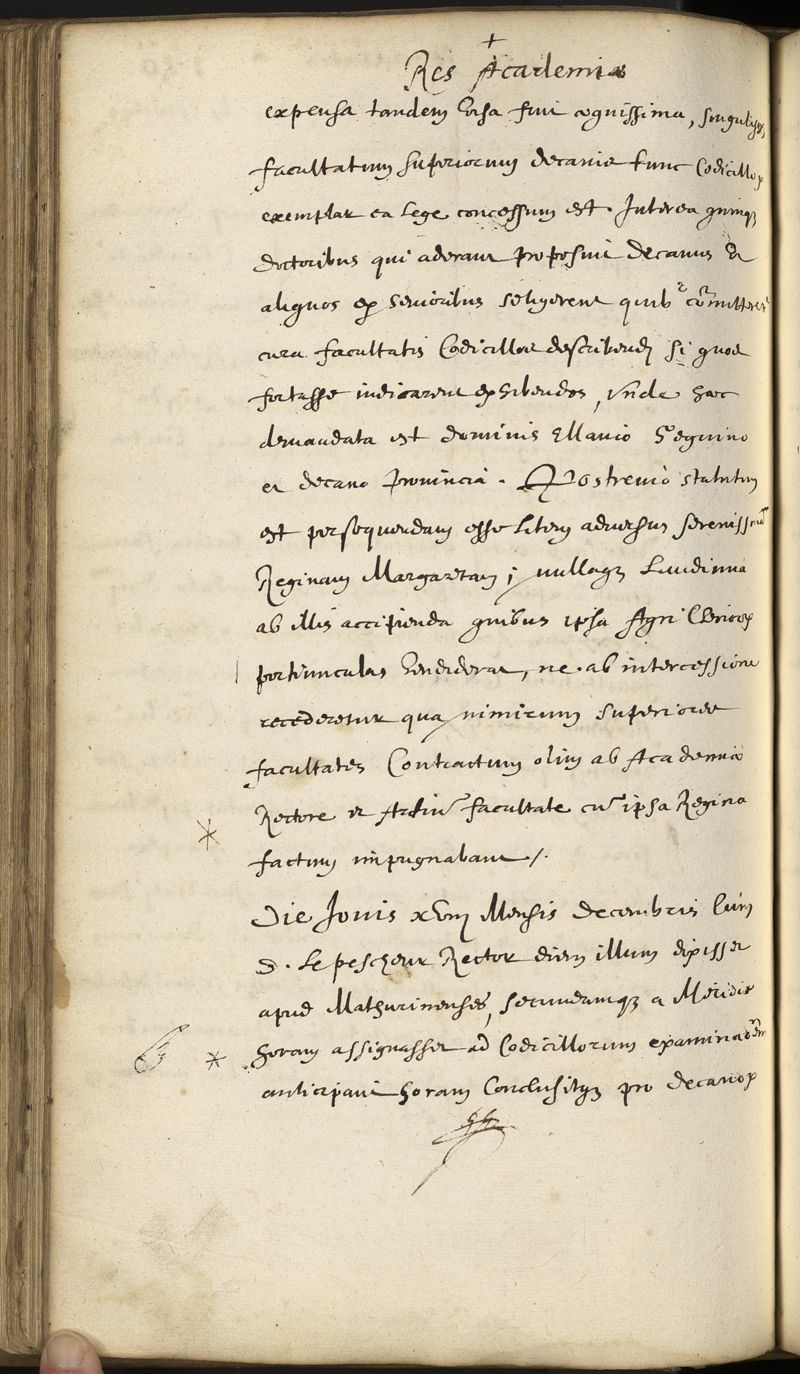 +
Res Academiæ
expensa tandem versa fuit æquissima, singulisq;
facultatum superiorum decanis tunc Codicillor
exemplar ea lege concessum est. Interea quinq;
doctoribus qui aderant proposuit decanus vt
aliquos ex senioribus seligerent quib9 comitteret
cura facultatis Codicillos describendi si quos
fortasse indicarent exhibendos, vnde hæc
demandata est dominis Ellanio Seguino
et decano prouincia. Postremò statutum
est persequendam esse litem aduersus serenissimā
Reginam Margaretam; nullaq; 
ab illis accipienda quibus ipsa Agri Clericor
portiunculas vendiderat, ne ab intercessione
recederetur qua nimirum superiores
facultates Contractum olim ab Academiæ
Rectore et Artiū facultate cū ipsa Regina
factum impugnabant /.
Die Jouis xvm Mensis decembris Cùm
D. Le pescheur Rector diem illum dixisset
apud Mathurinenses, secundamq; a Meridie
horam assignasset ad Codicillorum examinaōēm
anticipauit horam Conclusitq; pro decanor